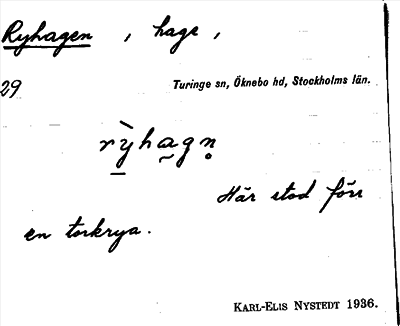 Ryhagen , hage ,
29
Turinge sn, Öknebo hd, Stockholms län.
rỳhagn̥
Här stod förr
en torkrya.
KARL-ELIS NYSTEDT 1936.